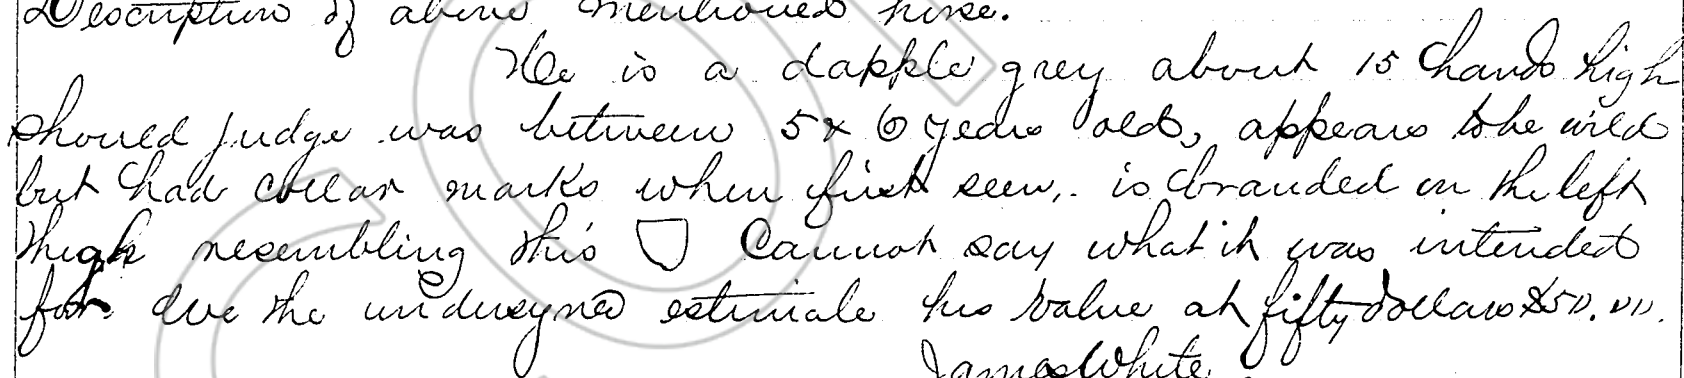 Description of above mentioned horse.
He is a dapple grey about 15 hands high
should judge was between 5 & 6 years old, appears to be wild
but had collar marks when first seen, is branded on the left
thigh resembling this Cannot say what it was intended
for. We the undersigned estimate his value at fifty dollars $50.00.
James White